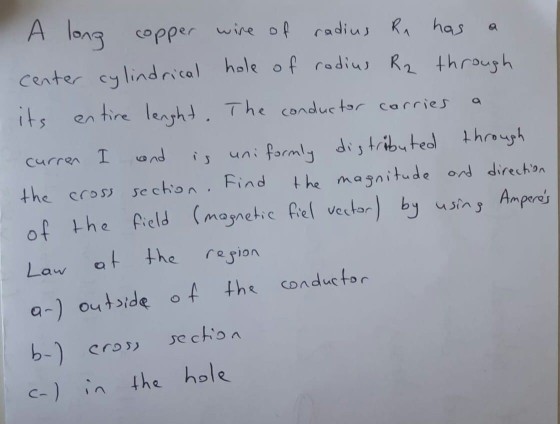 A long copper wire of radius R₁ has a
center cylindrical hole of radius R₂ through
its entire lenght. The conductor carries a
curren I and is uniformly distributed through
the cross section. Find the magnitude and direction
of the field (magnetic fiel vector) by using Ampere's
Law at the region
a-) outside of the conductor
b-) cross section
c-) in the hole